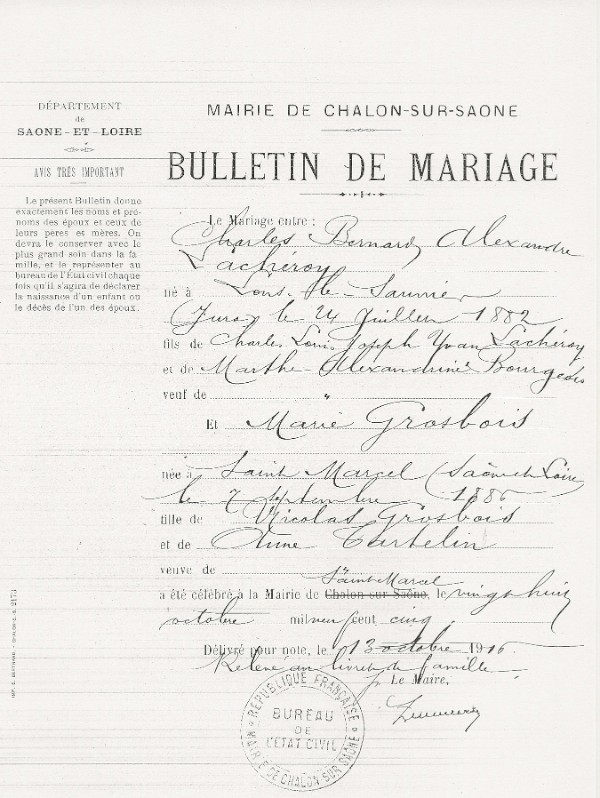 DÉPARTEMENT
de
SAONE-ET-LOIRE
AVIS TRÈS IMPORTANT
Le présent Bulletin donne
exactement les noms et pré-
noms des époux et ceux de
leurs pères et mères. On
devra le conserver avec le
plus grand soin dans la fa-
mille, et le représenter au
bureau de l'État civil chaque
fois qu'il s'agira de déclarer
la naissance d'un enfant ou
le décès de l'un des époux.
MAIRIE DE CHALON-SUR-SAONE
BULLETIN DE MARIAGE
Le Mariage entre :
Charles Bernard Alexandre
Lachéroy
né à Lons-le-Saunier
(Jura) le 24 Juillet 1882
fils de Charles Louis Joseph Yvan Lachéroy
et de Marthe Alexandrine Bourgeois
veuf de "
Et Marie Grosbois
née à Saint Marcel (Saône et Loire
le 7 septembre 1886
fille de Nicolas Grosbois
et de Anne Tartelin
veuve de
Saint Marcel
a été célébré à la Mairie de Chalon-sur-Saône, le vingt huit
octobre mil neuf cent cinq
Délivré pour note, le 13 octobre 1916
Relevé au livret de famille
Le Maire,
RÉPUBLIQUE FRANÇAISE
BUREAU
DE
L'ÉTAT CIVIL
MAIRIE DE CHALON SUR SAÔNE